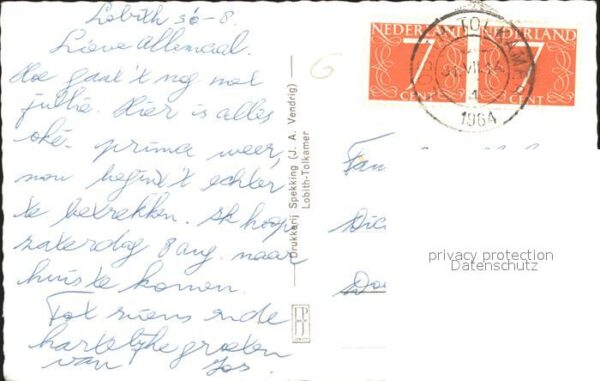 Lobith 30-8.
Lieve Allemaal.
Hoe gaat 't nog met
jullie. Hier is alles
oké. prima weer,
nou begint 't echter
te betrekken. Ik hoop
zaterdag 8 aug. naar
huis te komen.
Tot ziens en de
hartelijke groeten
van Jos.
Drukkerij Spekking (J. A. Vendrig)
Lobith-Tolkamer
G
NEDERLAND NEDERLAND
7 7
CENT CENT
TOLKAMER
1964
Fam
privacy protection
Datenschutz